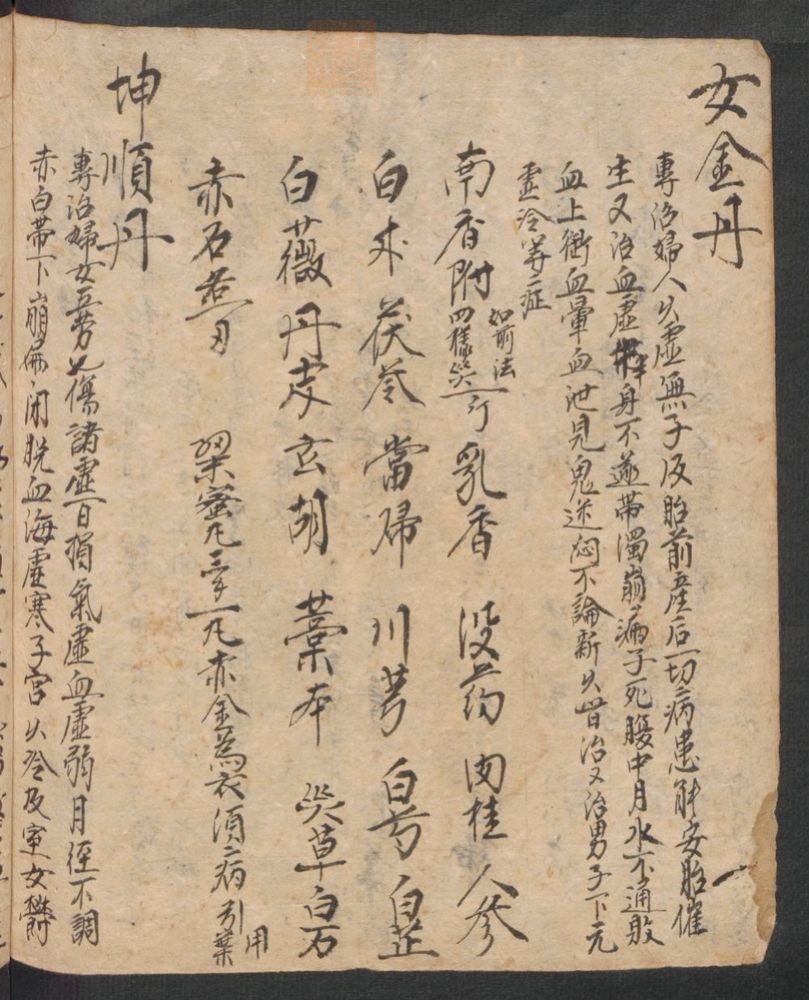 女金丹
專治婦人久虛無子及胎前産后一切病患能安胎催
生又治血虛身不遂帶濁崩漏子死腹中月水不通敗
血上衝血暈血泄見鬼迷悶不論新久皆治又治男子下元
虛冷等症
南香附四樣炎一斤如前法 乳香 没药 肉桂 人參
白朮 茯苓 當歸 川芎 白芍 白芷
白薇 丹皮 玄胡 藁本 炙草 白石
赤石
蜜丸 一丸赤金爲衣須病引用
坤順丹
專治婦女五劳七傷諸虛百損氣虛血虛弱月徑不調
赤白帶下崩漏閉脱血海虛寒子宮久冷及室女欝